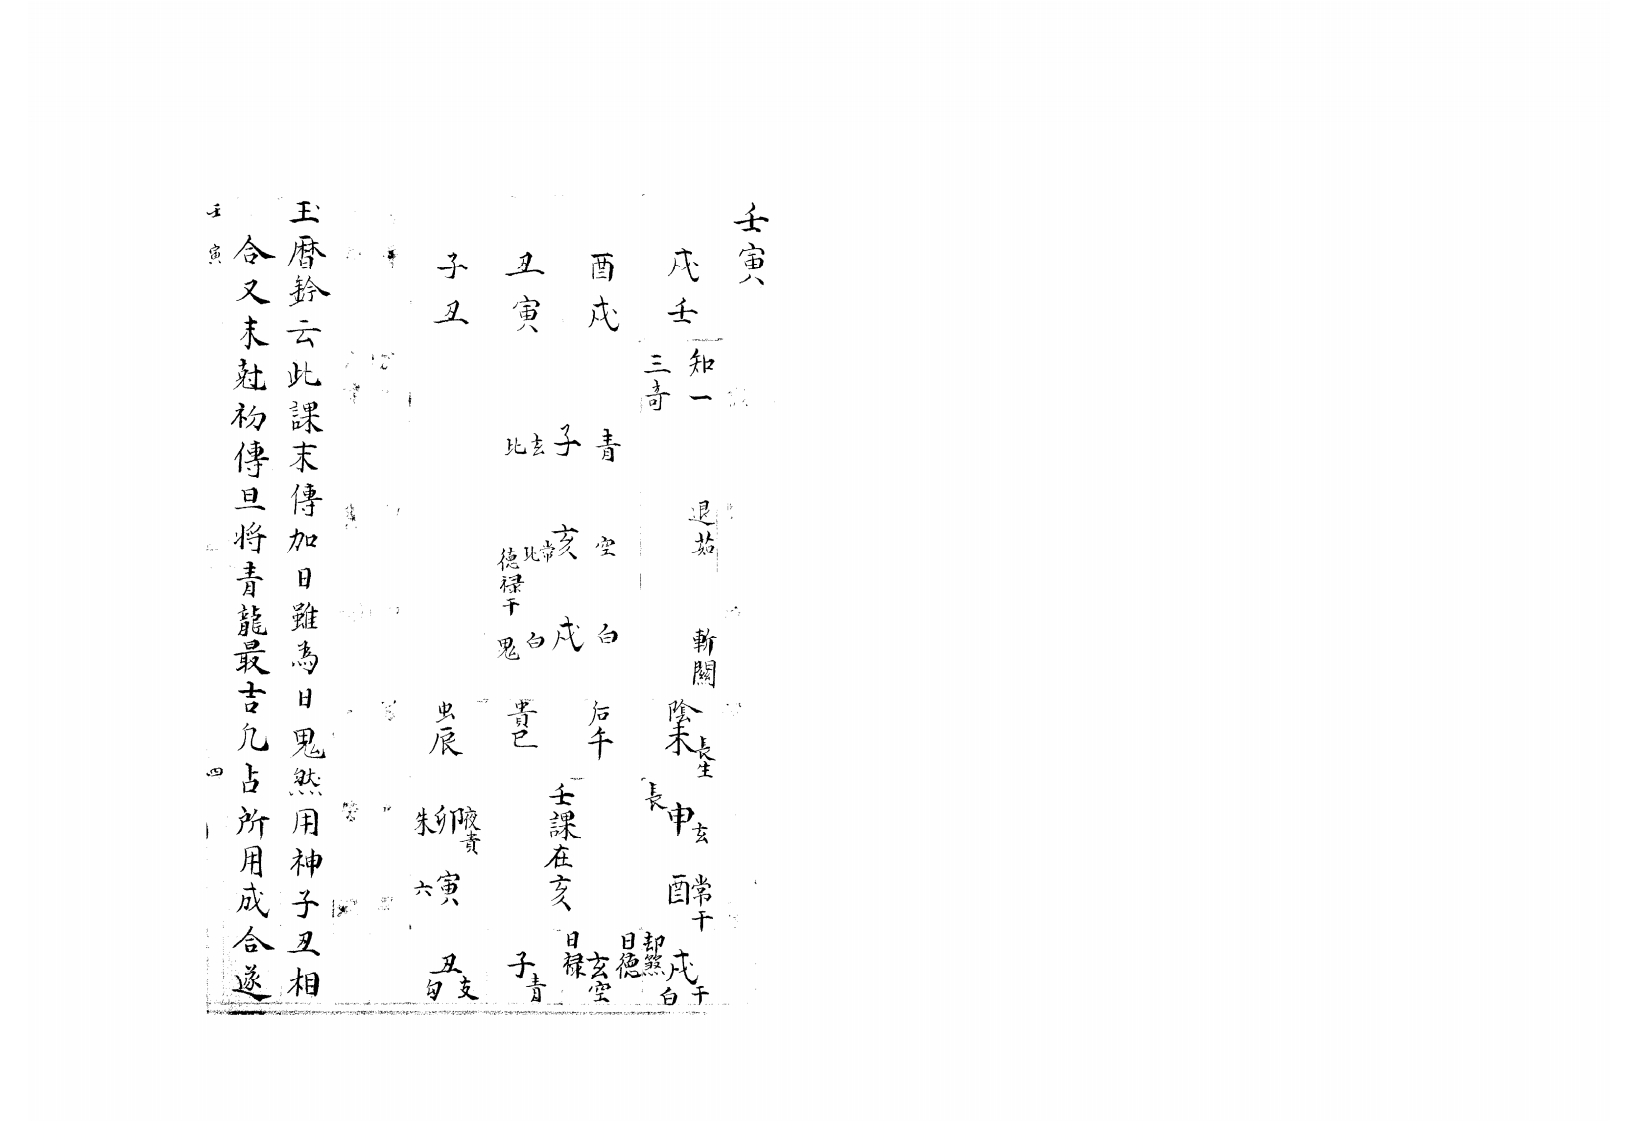 壬寅
戌壬
酉戌
丑寅
子丑
知一
三奇
退茹
斬關
青子玄比
空亥常比德禄干
白戌白鬼
陰未長生
后午
貴巳
虫辰
長申玄
壬課在亥
朱卯夜貴
酉常干
六寅
戌干白
却煞
日德
亥空
日禄
子青
丑支勾
玉曆鈐云此課末傳加日雖為日鬼然用神子丑相
合又末尅初傳旦將青龍最吉凡占所用成合遂
壬寅
四